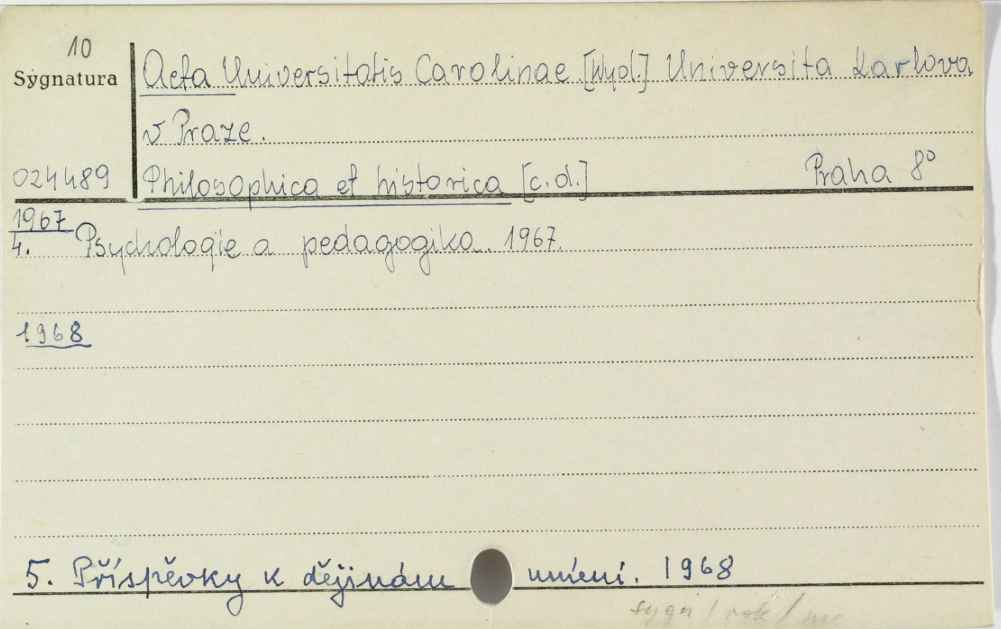 10
Sygnatura
Acta Universitatis Carolinae [Wyd.] Universita Karlova
v Praze.
024489 Philosophica et historica [c.d.] Praha 8°
1967
4. Psychologie a pedagogika. 1967.
1968
5. Příspěvky k dějinám umění. 1968
sygn / rok /